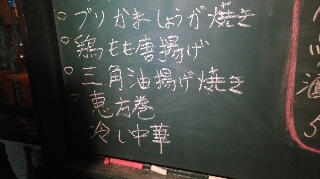 ○ ブリかましょうが焼き
○ 鶏もも唐揚げ
○ 三角油揚げ焼き
○ 恵方巻
冷し中華
酒